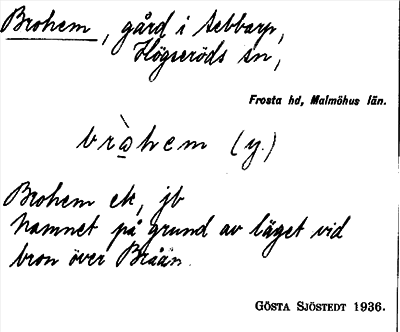 Brohem, gård i Äebbarp,
Högseröds sn,
Frosta hd, Malmöhus län.
bròhem (y.)
Brohem ek, jb
Namnet på grund av läget vid
bron över Bråån.
GÖSTA SJÖSTEDT 1936.